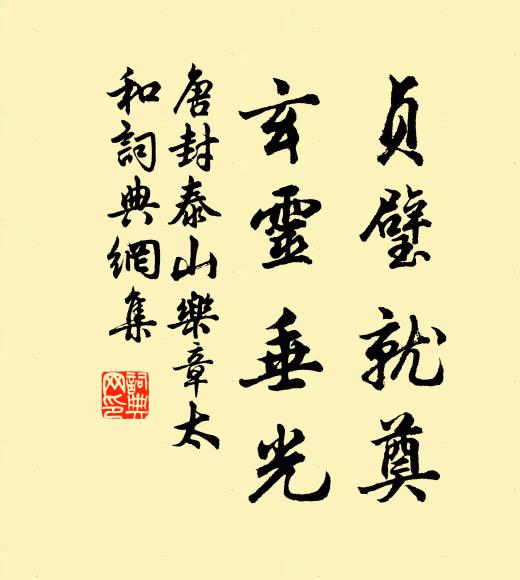 貞璧就奠
玄靈垂光
唐封泰山樂章太
和詞典網集
詞典
网印